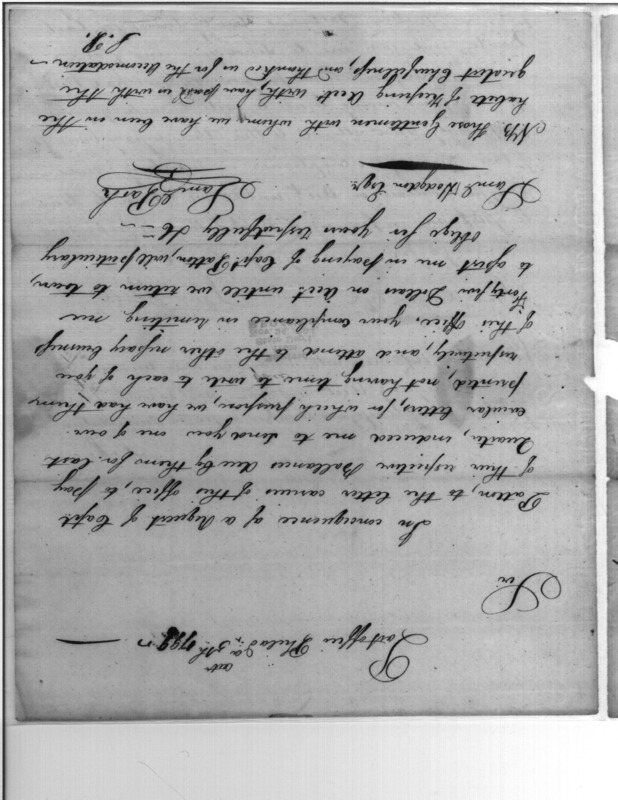 Post office Philada. 5th octr 1799
Sir
In consequence of a Request of Capt.
Patton, to the letter carriers of this office, to pay
of their respective Ballances due by them for last
Quarter, induced me to send you one of our
circular letters, for which purpose, we have had them
printed, not having time to write to each of you
respectively, and attend to the other necessary business
of this Office, your compliance in remitting me
Dollars on Acct. untill we return to town,
to assist me in paying of Capt. Patton, will particulary
oblige Sir yours respectfully &c
Saml. Hodgdon Esqr. Saml.
NB. those Gentlemen with whom we have been in the
habits of keeping Acct. with, have paid us with the
greatest Chearfullness, and thanked us for the Accomodation